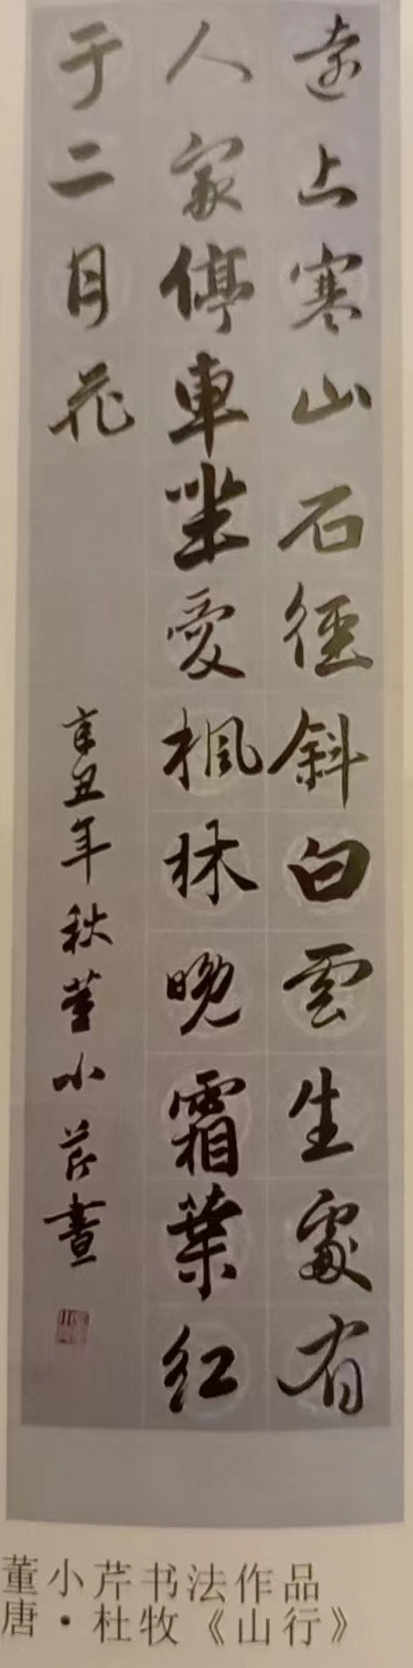 遠上寒山石徑斜白雲生處有
人家停車坐愛楓林晚霜葉紅
于二月花
辛丑年秋董小芹書
董小芹书法作品
唐·杜牧《山行》